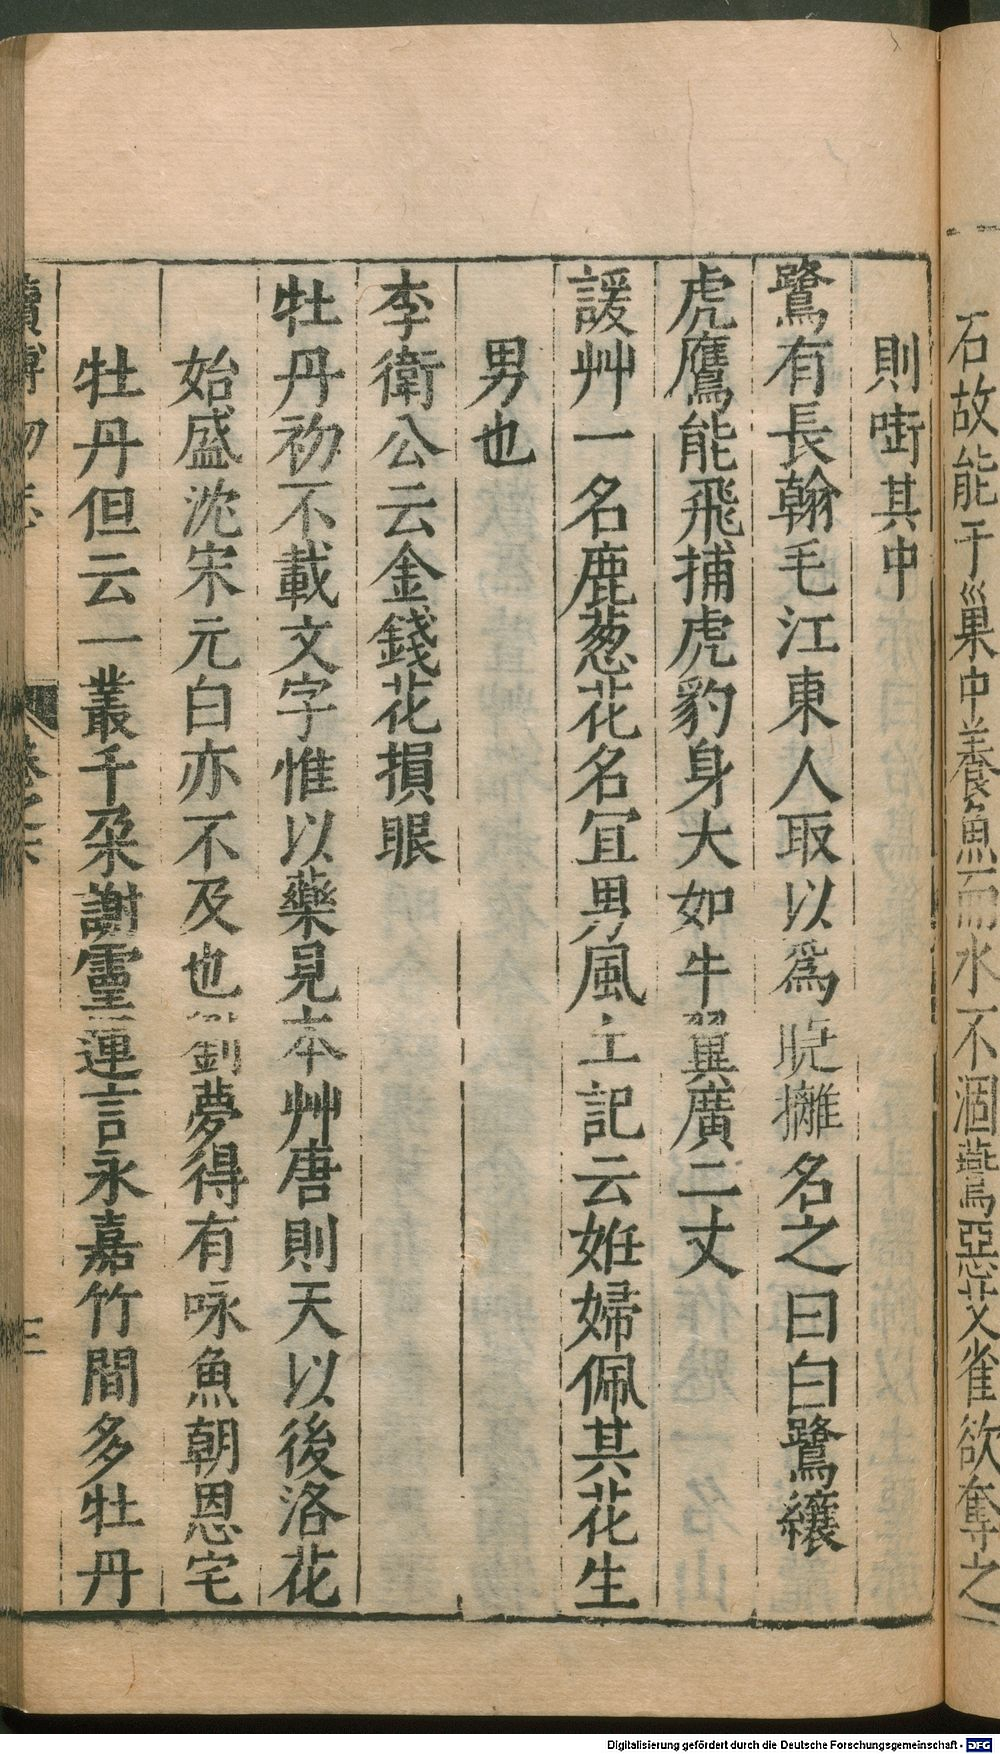 石故能于巢中養魚而水不涸燕惡艾雀欲奪之
則啣其中
鷺有長翰毛江東人取以爲睫攡名之曰白鷺纕
虎鷹能飛捕虎豹身大如牛翼廣二丈
諼艸一名鹿葱花名宜男風土記云姙婦佩其花生
男也
李衛公云金錢花損眼
牡丹初不載文字惟以藥見本艸唐則天以後洛花
始盛沈宋元白亦不及也劉夢得有咏魚朝恩宅
牡丹但云一叢千朶謝靈運言永嘉竹間多牡丹
續博物志
卷之六
三
Digitalisierung gefördert durch die Deutsche Forschungsgemeinschaft - DFG